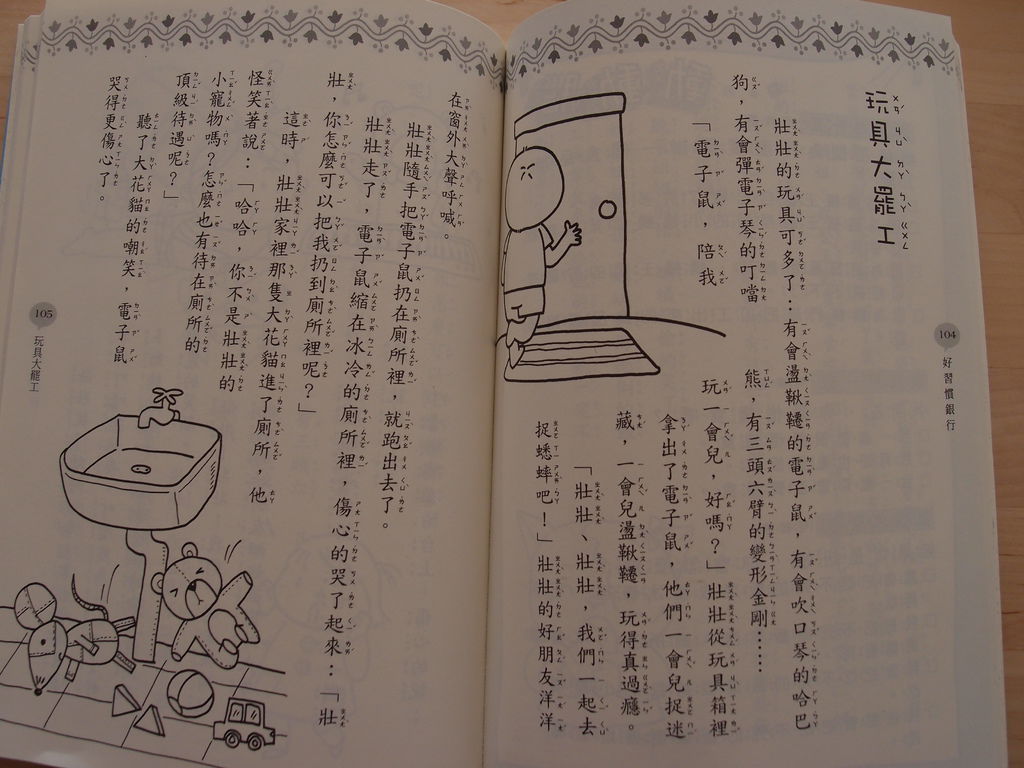 玩具大罷工
壯壯的玩具可多了：有會盪鞦韆的電子鼠，有會吹口琴的哈巴
狗，有會彈電子琴的叮噹
熊，有三頭六臂的變形金剛……
「電子鼠，陪我
玩一會兒，好嗎？」壯壯從玩具箱裡
拿出了電子鼠，他們一會兒捉迷
藏，一會兒盪鞦韆，玩得真過癮。
「壯壯、壯壯，我們一起去
捉蟋蟀吧！」壯壯的好朋友洋洋
104
好習慣銀行
在窗外大聲呼喊。
壯壯隨手把電子鼠扔在廁所裡，就跑出去了。
壯壯走了，電子鼠縮在冰冷的廁所裡，傷心的哭了起來：「壯
壯，你怎麼可以把我扔到廁所裡呢？」
這時，壯壯家裡那隻大花貓進了廁所，他
怪笑著說：「哈哈，你不是壯壯的
小寵物嗎？怎麼也有待在廁所的
頂級待遇呢？」
聽了大花貓的嘲笑，電子鼠
哭得更傷心了。
105
玩具大罷工